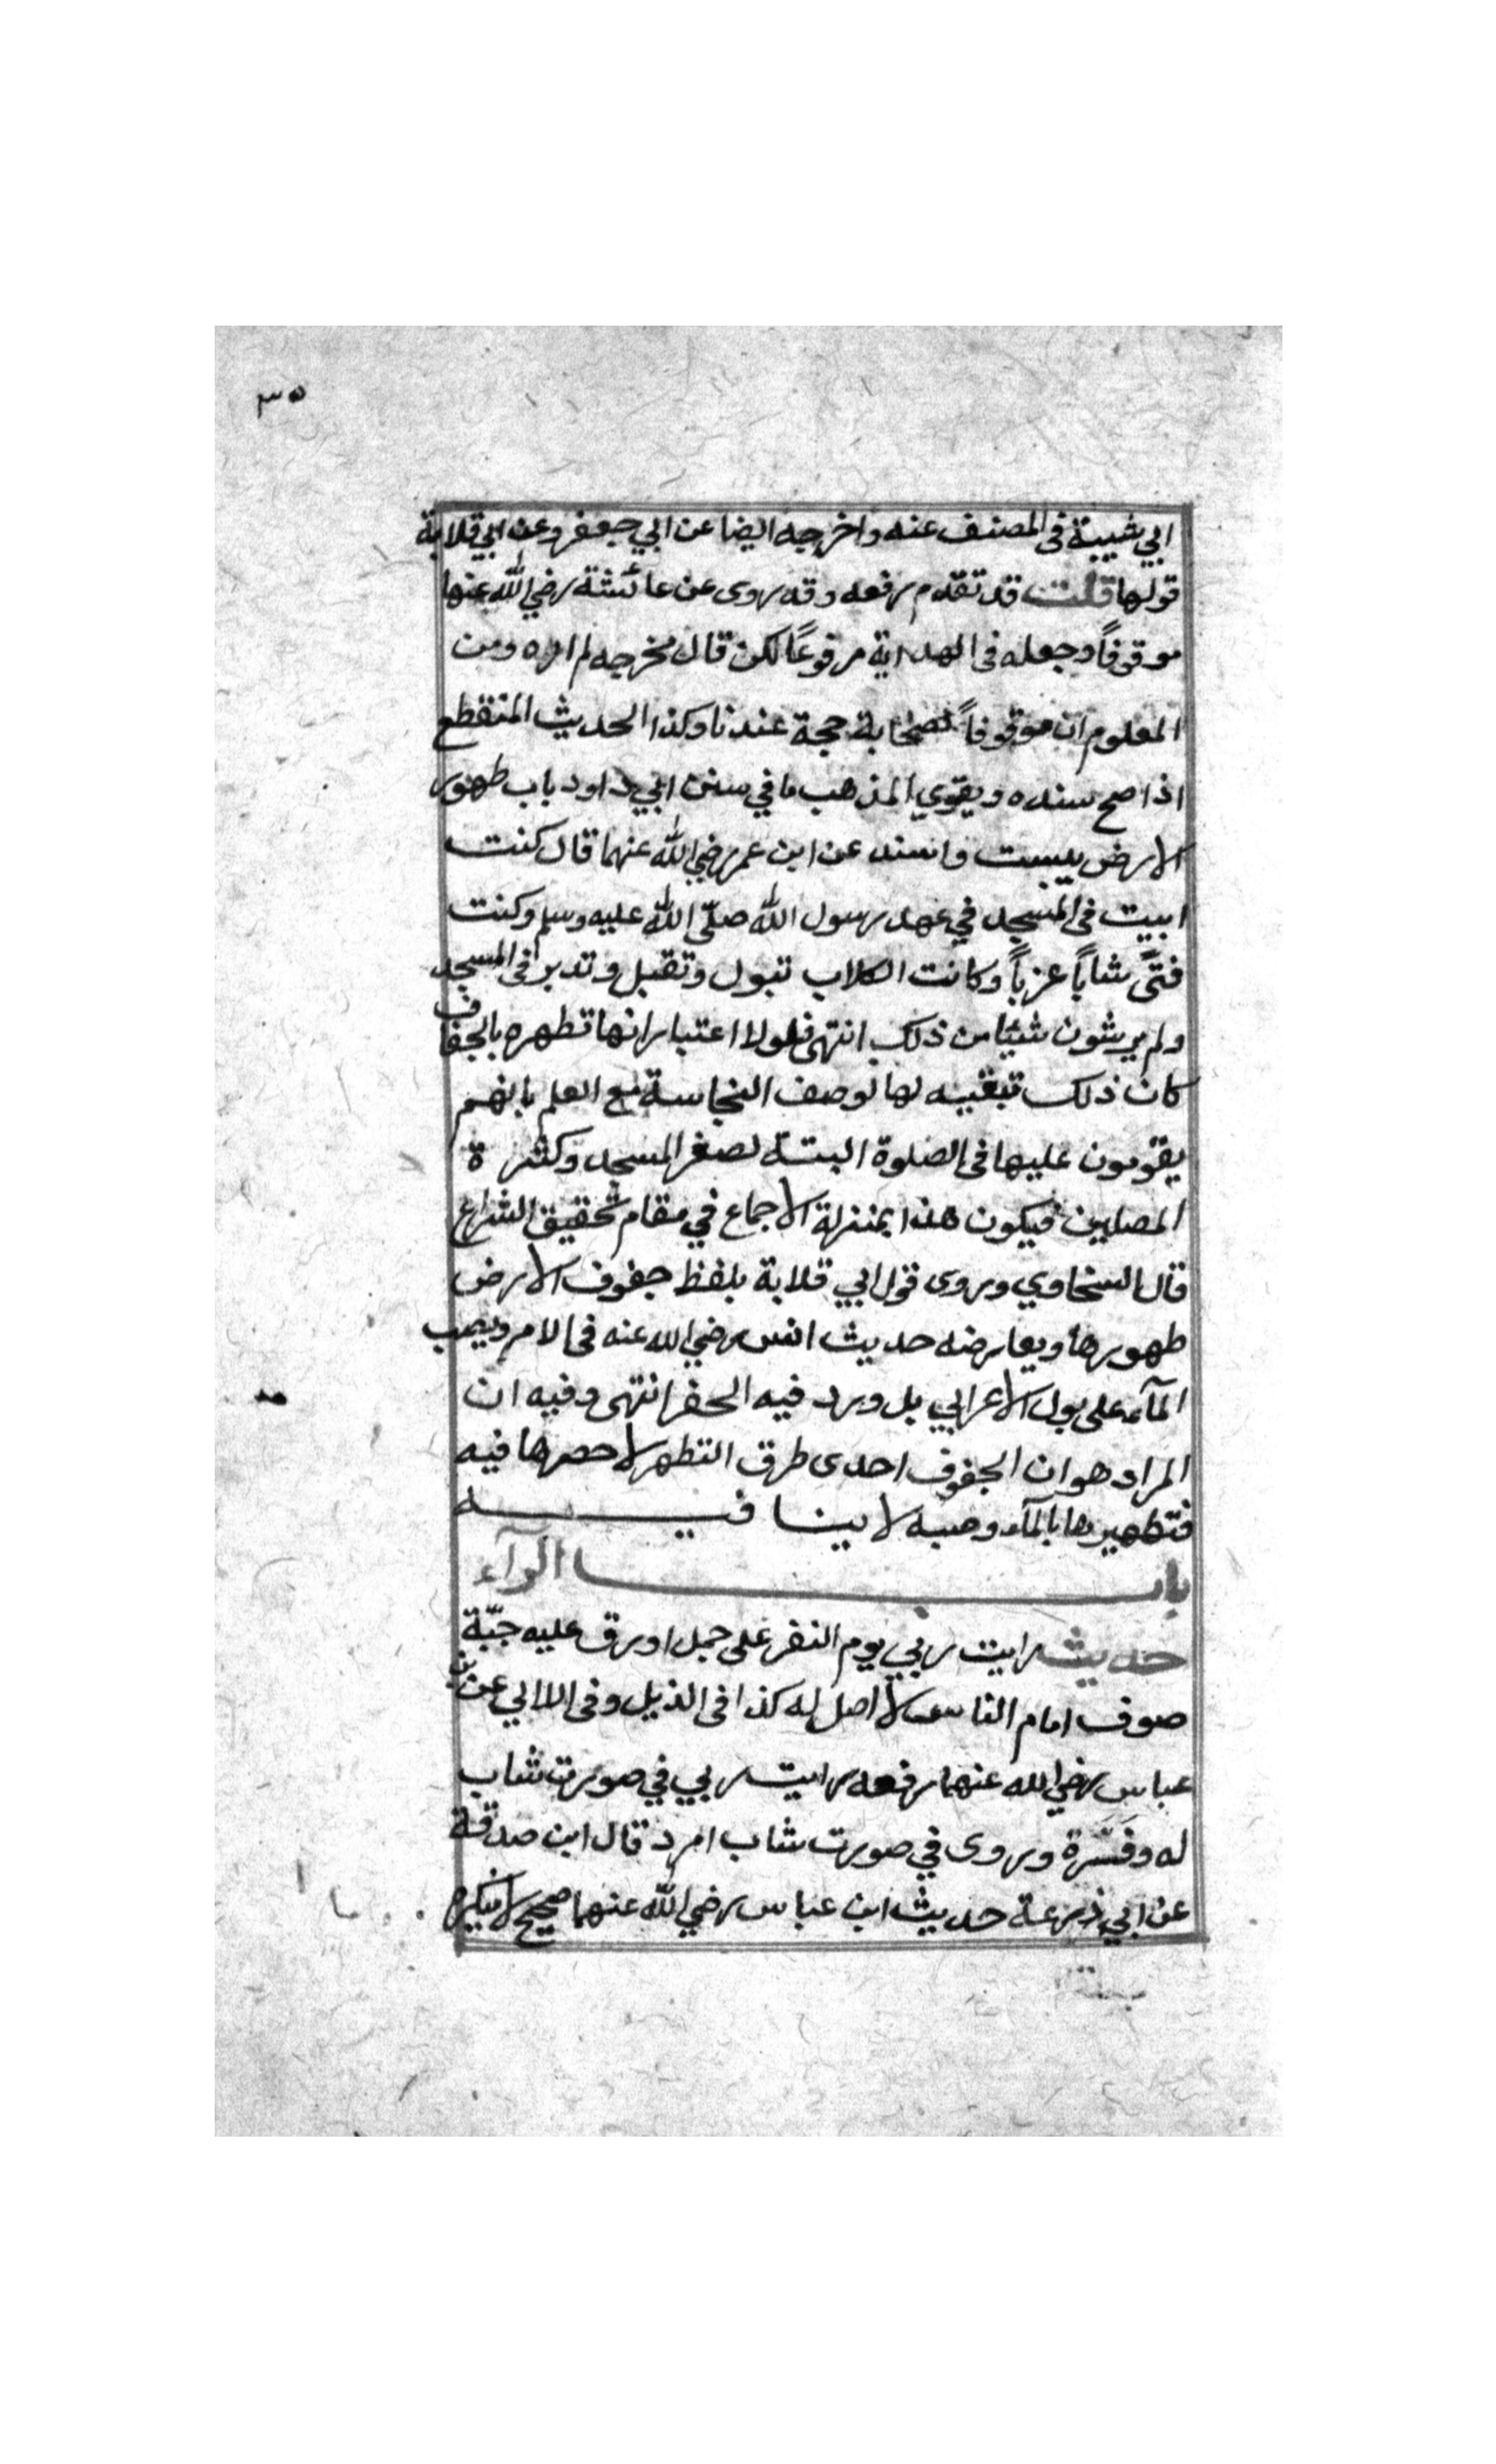 ٣٥
ابي شيبة فى المصنف عنه واخرجه ايضا عن ابي جعفر وعن ابي قلابة
قولها قلت قد تقدم رفعه وقد روى عن عائشة رضي الله عنها
موقوفاً وجعله فى الهداية مرفوعاً لكن قال مخرجه لم اره ومن
المعلوم ان موقوفاً لصحابة حجة عندنا وكذا الحديث المنقطع
اذا صح سنده ويقوي المذهب ما في سنن ابي داود باب طهور
الارض يبست واسند عن ابن عمر رضي الله عنهما قال كنت
ابيت فى المسجد في عهد رسول الله صلّى الله عليه وسلم وكنت
فتىً شاباً عزباً وكانت الكلاب تبول وتقبل وتدبر فى المسجد
ولم يرشون شيئا من ذلك انتهى فلولا اعتبار انها تطهره بالجفاف
كان ذلك تبقيه لها لوصف النجاسة مع العلم بانهم
يقومون عليها فى الصلوة البتة لصغر المسجد وكثرة
المصلين فيكون هذا بمنزلة الاجماع في مقام تحقيق الشراع
قال السخاوي وروى قول ابي قلابة بلفظ جفوف الارض
طهورها ويعارضه حديث انس رضي الله عنه فى الامر ويصب
المآء على بول الاعرابي بل ورد فيه الحفر انتهى وفيه ان
المراد هو ان الجفوف احدى طرق التطهر لا حصرها فيه
فتطهيرها بالمآء وصبه لا ينا فيه
باب الرآء
حديث رايت ربي يوم النفر على جمل اورق عليه جبّة
صوف امام الناس لا اصل له كذا فى الذيل وفى الاالي عن بن
عباس رضي الله عنهما رفعه رايت ربي في صورت شاب
له وفسّرة وروى في صورت شاب امرد قال ابن صدقة
عن ابي ذرعة حديث ابن عباس رضي الله عنهما صحيح لا ينكره